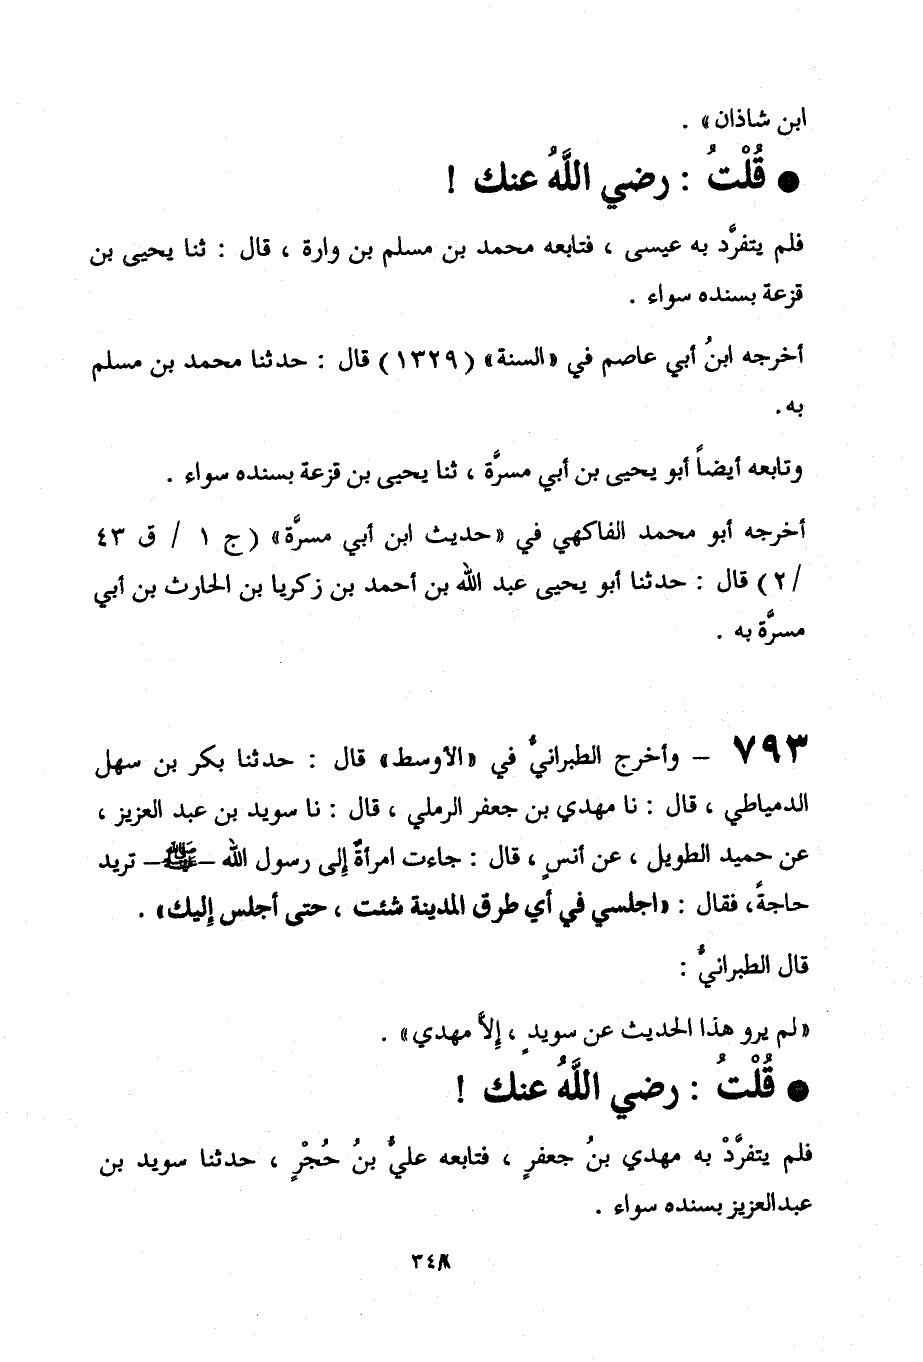 ابن شاذان» .
● قُلْتُ : رضي اللَّهُ عنك !
فلم يتفرَّد به عيسى ، فتابعه محمد بن مسلم بن وارة ، قال : ثنا يحيى بن
قزعة بسنده سواء .
أخرجه ابنُ أبي عاصم في «السنة» (١٣٢٩) قال : حدثنا محمد بن مسلم
به.
وتابعه أيضاً أبو يحيى بن أبي مسرَّة ، ثنا يحيى بن قزعة بسنده سواء .
أخرجه أبو محمد الفاكهي في «حديث ابن أبي مسرَّة» (ج ١ / ق ٤٣
/٢) قال : حدثنا أبو يحيى عبد الله بن أحمد بن زكريا بن الحارث بن أبي
مسرَّة به .
٧٩٣ – وأخرج الطبرانيُّ في «الأوسط» قال : حدثنا بكر بن سهل
الدمياطي ، قال : نا مهدي بن جعفر الرملي ، قال : نا سويد بن عبد العزيز ،
عن حميد الطويل ، عن أنسٍ ، قال : جاءت امرأةٌ إلى رسول الله –ﷺ– تريد
حاجةً، فقال : «اجلسي في أي طرق المدينة شئت ، حتى أجلس إليك» .
قال الطبرانيُّ :
«لم يرو هذا الحديث عن سويدٍ ، إلاَّ مهدي» .
● قُلْتُ : رضي اللَّهُ عنك !
فلم يتفرَّدْ به مهدي بنُ جعفرٍ ، فتابعه عليُّ بنُ حُجْرٍ ، حدثنا سويد بن
عبدالعزيز بسنده سواء .
٣٤٨